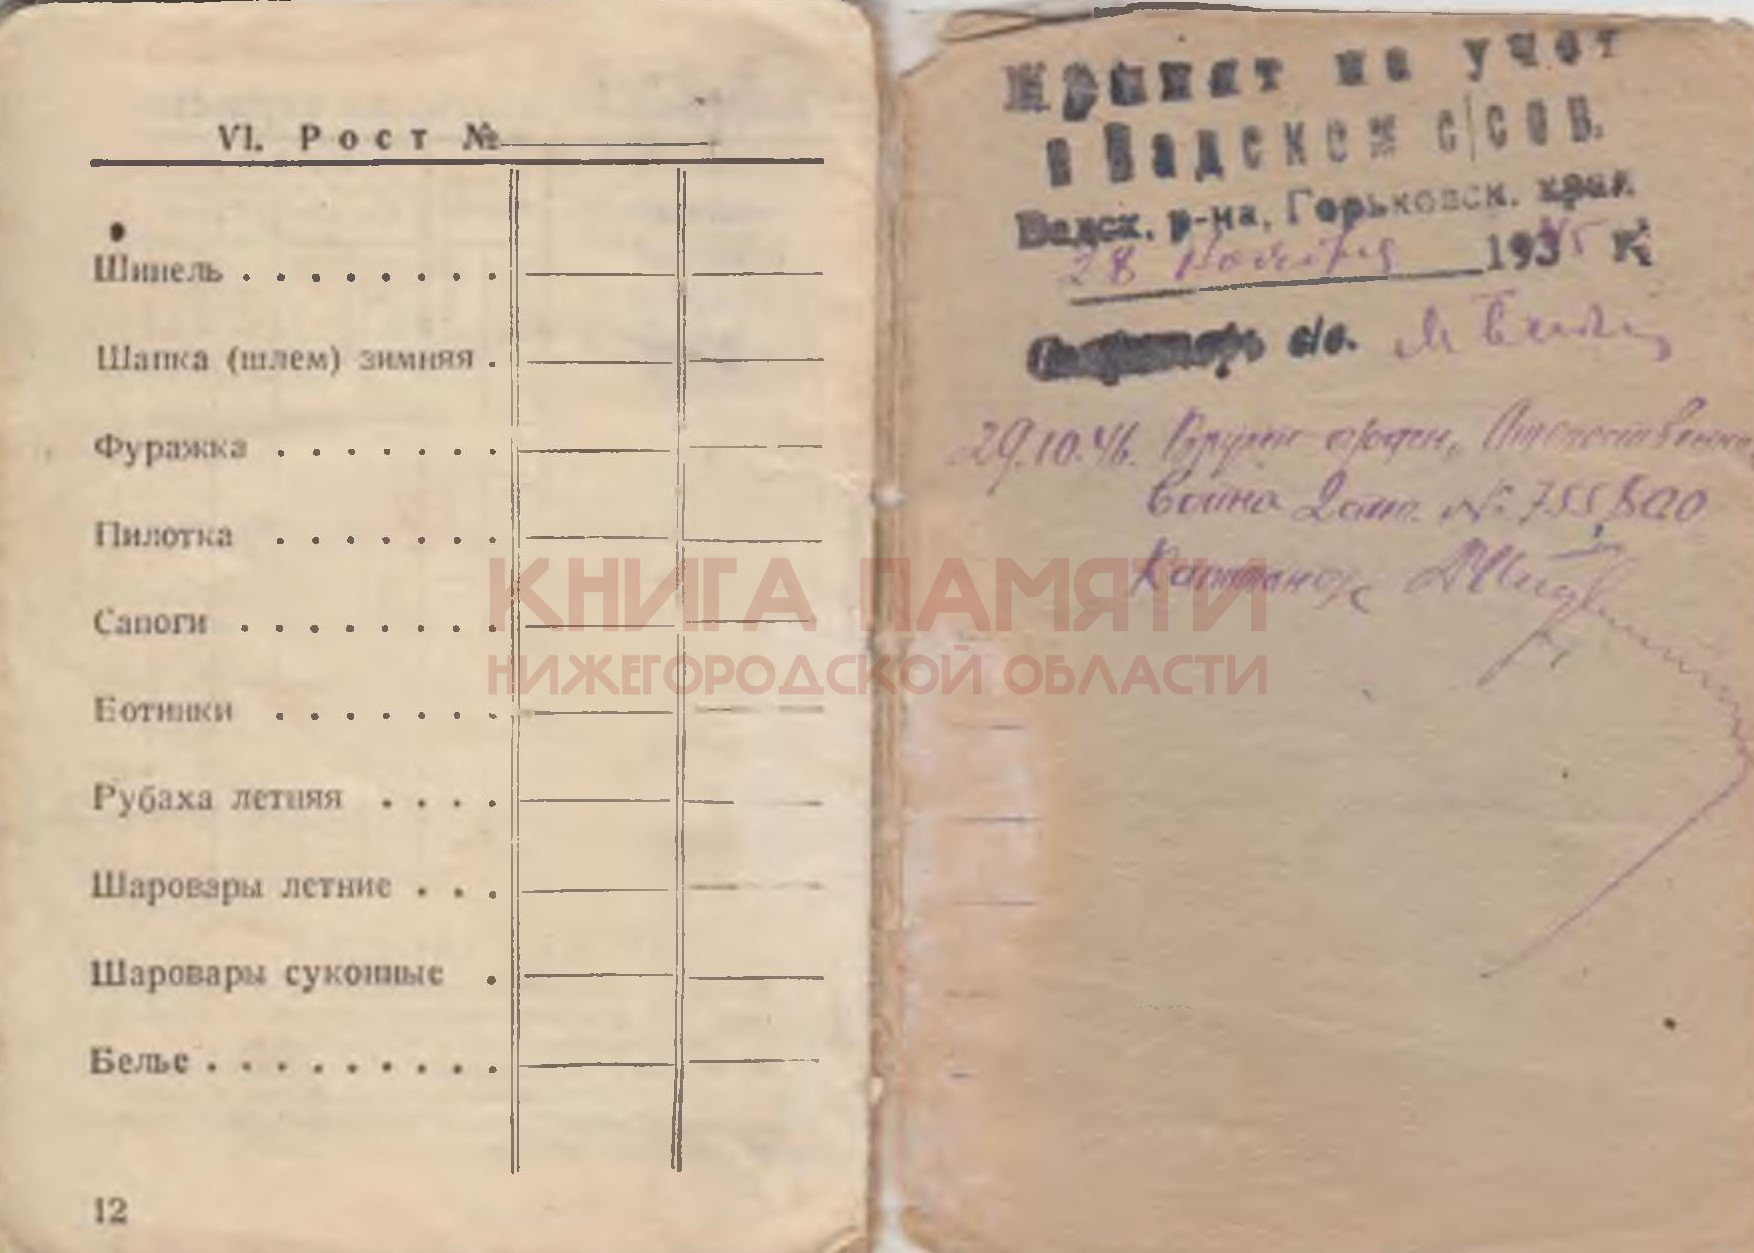 VI. Рост №
Шинель
Шапка (шлем) зимняя
Фуражка
Пилотка
Сапоги
Ботинки
Рубаха летняя
Шаровары летние
Шаровары суконные
Белье
12
Принят на учет
в Вадском с/сов.
Вадск. р-на, Горьковск. края
28 ноября 1945 г.
Секретарь с/с.
29.10.46. Вручен орден, Отечественная
война 2 степ. № 755,800
Капитан
КНИГА ПАМЯТИ
НИЖЕГОРОДСКОЙ ОБЛАСТИ